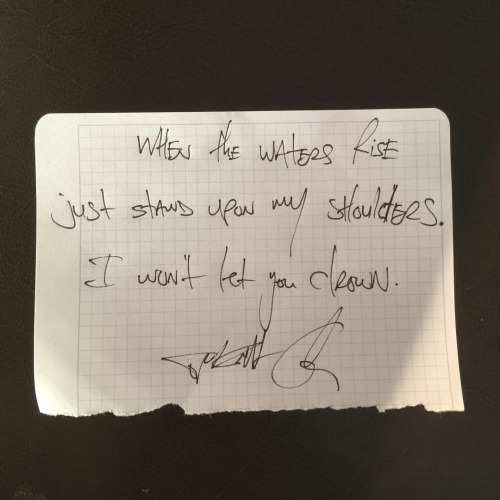 WHEN the WATERS RISE
just STAND UPON my SHOULDERS.
I won't let you drown.